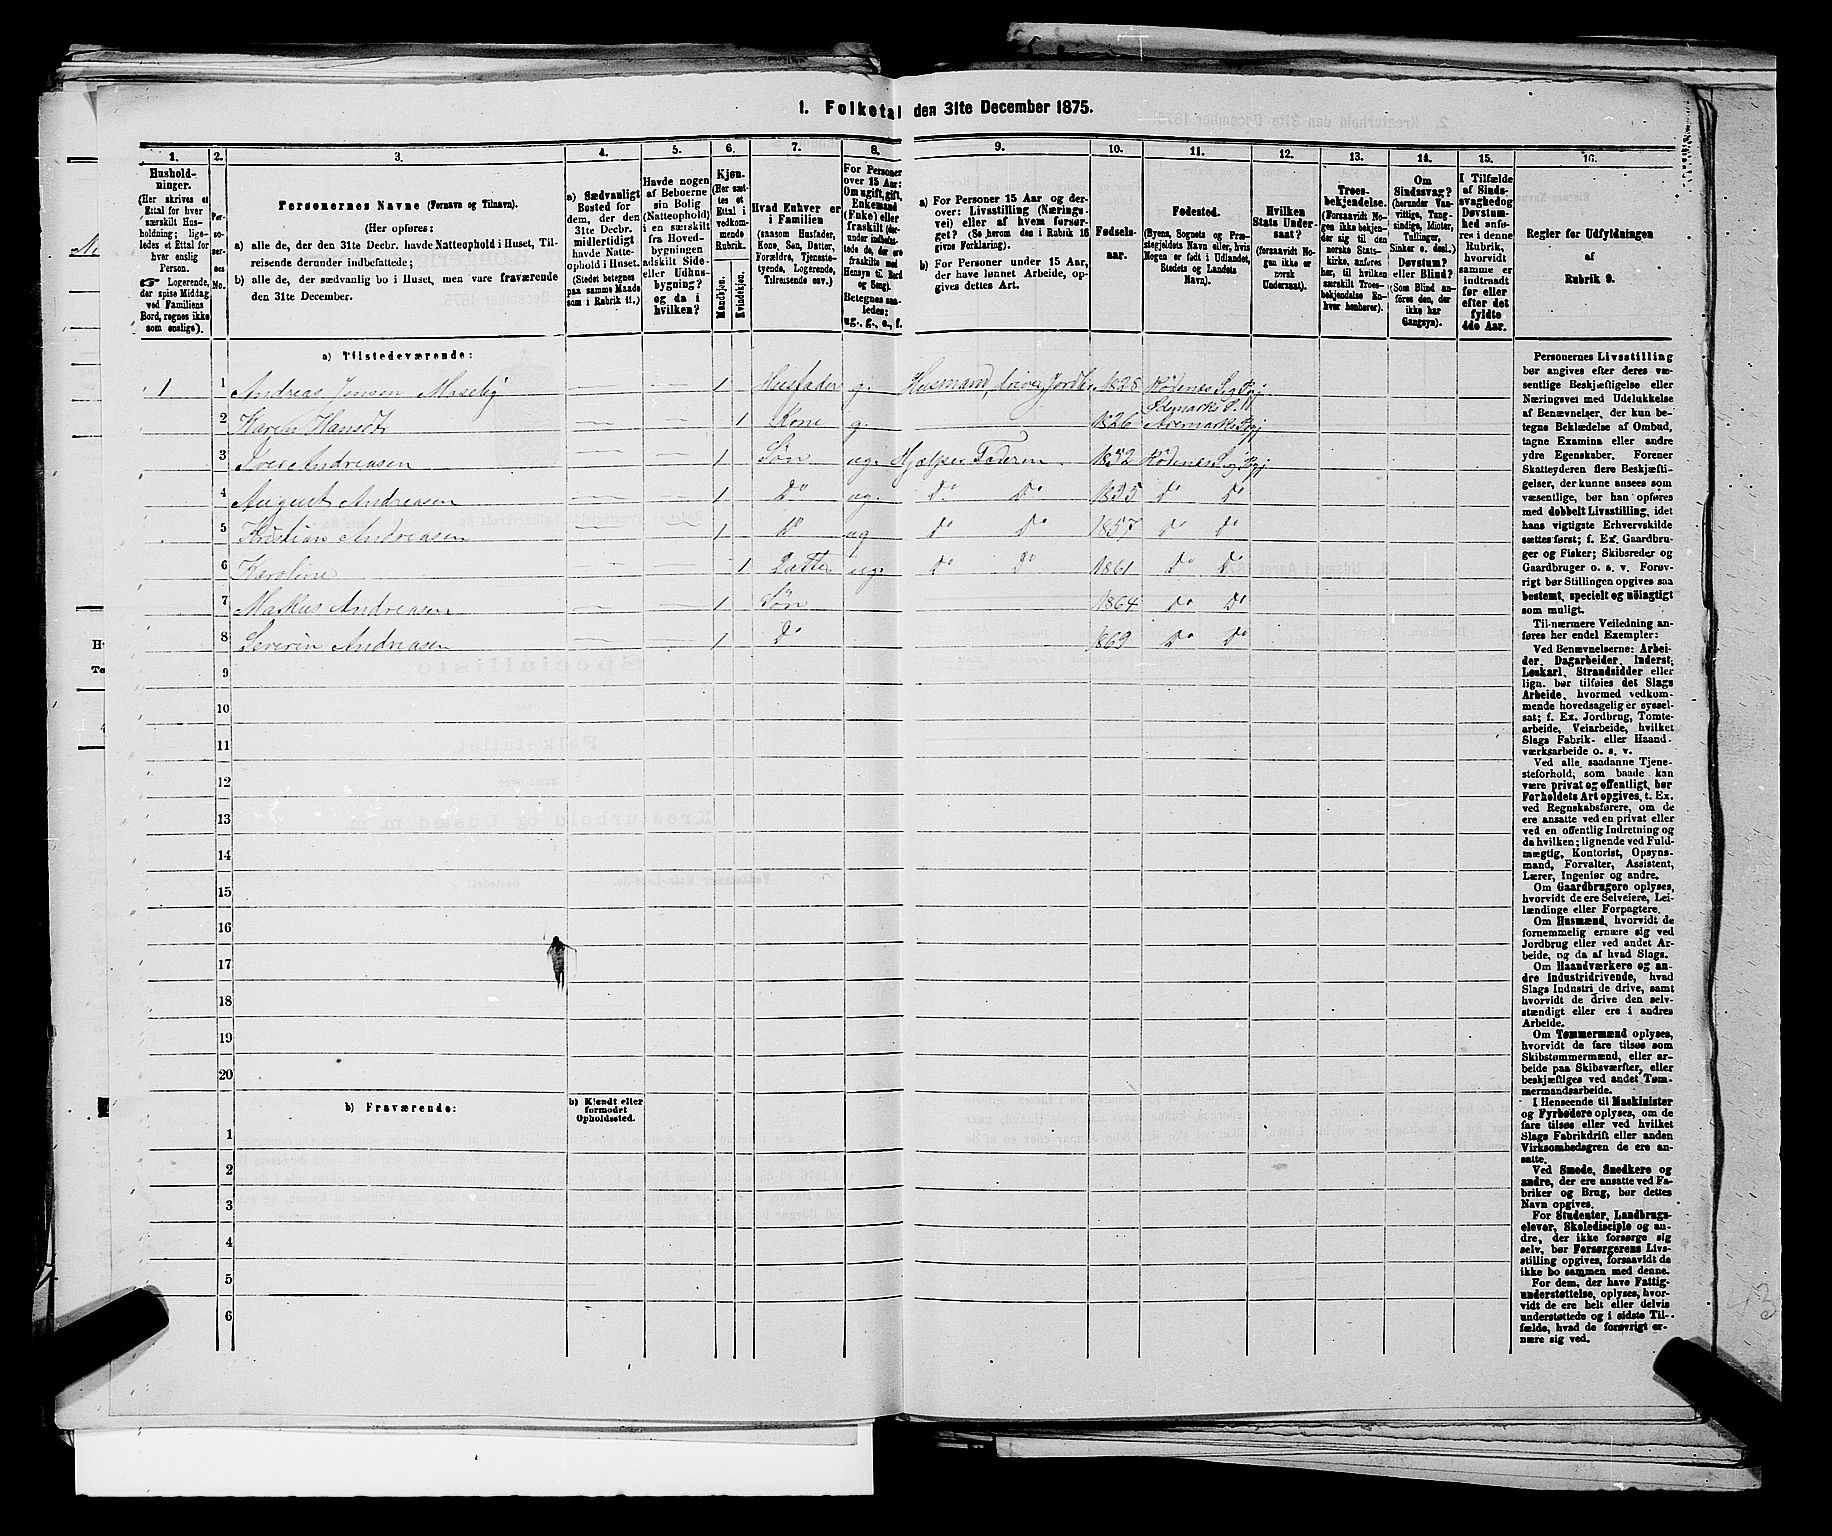 1. Folketal den 31te December 1875.
1.
2.
3.
4.
5.
6.
7.
8.
9.
10.
11.
12.
13.
14.
15.
16.
Hushold-
ninger.
(Her skrives et
Ettal for hver
særskilt Hus-
holdning; lige-
ledes et Ettal for
hver enslig
Person.
☞ Logerende,
der spise Middag
ved Familiens
Bord, regnes ikke
som enslige).
Per-
so-
ner-
nes
No.
Personernes Navne (Fornavn og Tilnavn).
(Her opføres:
a) alle de, der den 31te Decbr. havde Natteophold i Huset, Til-
reisende derunder indbefattede;
b) alle de, der sædvanlig bo i Huset, men vare fraværende
den 31te December.
a) Sædvanligt
Bosted for
dem, der den
31te Decbr.
midlertidigt
havde Natte-
ophold i Huset.
(Stedet betegnes
paa samme Maade
som i Rubrik 11.)
Havde nogen
af Beboerne
sin Bolig
(Natteophold)
i en særskilt
fra Hoved-
bygningen
adskilt Side-
eller Udhus-
bygning?
og da i
hvilken?
Kjøn.
(Her sæt-
tes et
Ettal i
vedkom-
mende
Rubrik.
Mandkjøn.
Kvindekjøn.
Hvad Enhver er
i Familien
(saasom Husfader,
Kone, Søn, Datter,
Forældre, Tjeneste-
tyende, Logerende,
Tilreisende osv.)
For Personer
over 15 Aar:
Om ugift, gift,
Enkemand
(Enke) eller
fraskilt (der-
under indbefat-
tede de, der ere
fraskilte med
Hensyn til Bord
og Seng).
Betegnes saa-
ledes:
ug., g., e., f.
a) For Personer 15 Aar og der-
over: Livsstilling (Nærings-
vei) eller af hvem forsør-
get? (Se herom den i Rubrik 16
givne Forklaring).
b) For Personer under 15 Aar,
der have lønnet Arbeide, op-
gives dettes Art.
Fødsels-
aar.
Fødested.
(Byens, Sognets og Præ-
stegjeldets Navn eller, hvis
Nogen er født i Udlandet,
Stedets og Landets
Navn).
Hvilken
Stats Under-
saat?
(forsaavidt No-
gen ikke er
norsk
Undersaat).
Troes-
bekjendelse.
(Forsaavidt No-
gen ikke bekjen-
der sig til den
norske Stats-
kirke, anføres
her, til hvilken
særskilt Troes-
bekjendelse En-
hver henhører).
Om
Sindssvag?
(herunder Van-
vittige, Tung-
sindige, Idioter,
Tullinger,
Sinker o. desl.)
Døvstum?
eller Blind?
(Som Blind an-
føres den, der
ikke har
Gangsyn).
I Tilfælde
af Sinds-
svaghed og
Døvstum-
hed anfø-
res i denne
Rubrik,
hvorvidt
samme er
indtraadt
før eller
efter det
fyldte
4de Aar.
Regler for Udfyldningen
af
Rubrik 9.
a) Tilstedeværende:
1 1 Andreas Jensen Moselig 1 Husfader g. Husmand, driver Jordb. 1828 Rødenes S. og Pgj
2 Karen Hansdt 1 Kone g. 1826 Ødemarks S. Aremarks Pgj
3 Iver Andreasen 1 Søn ug. Hjælper Faderen 1852 Rødenes S. og Pgj
4 August Andreasen 1 Do ug. Do Do 1855 Do Do
5 Kristian Andreasen 1 Do ug Do Do 1857 Do Do
6 Karoline 1 Datter ug. Do Do 1861 Do Do
7 Markus Andreasen 1 Søn 1864 Do Do
8 Severin Andreasen 1 Do 1869 Do Do
9
10
11
12
13
14
15
16
17
18
19
20
b) Fraværende:
b) Kjendt eller
formodet
Opholdssted.
1
2
3
4
5
6
Personernes Livsstilling
bør angives efter deres væ-
sentlige Beskjæftigelse eller
Næringsvei med Udelukkelse
af Benævnelser, der kun be-
tegne Beklædelse af Ombud,
tagne Examina eller andre
ydre Egenskaber. Forener
Skatteyderen flere Beskjæfti-
gelser, der kunne ansees som
væsentlige, bør han opføres
med dobbelt Livsstilling, idet
hans vigtigste Erhvervskilde
sættes først; f. Ex. Gaardbru-
ger og Fisker; Skibsreder og
Gaardbruger o. s. v. Forøv-
rigt bør Stillingen opgives saa
bestemt, specielt og nöiagtigt
som muligt.
Til nærmere Veiledning an-
føres her endel Exempler:
Ved Benævnelserne: Arbei-
der, Dagarbeider, Inderst,
Løskarl, Strandsidder eller
lign. bør tilføies det Slags
Arbeide, hvormed vedkom-
mende hovedsagelig er syssel-
sat; f. Ex. Jordbrug, Tomte-
arbeide, Veiarbeide, hvilket
Slags Fabrik- eller Haand-
værksarbeide o. s. v.
Ved alle saadanne Tjene-
steforhold, som baade kan
være privat og offentligt, bør
Forholdets Art opgives, t. Ex.
ved Regnskabsførere, om de
ere ansatte ved en privat eller
ved en offentlig Indretning og
da hvilken; lignende ved Fuld-
mægtig, Kontorist, Opsyns-
mand, Forvalter, Assistent,
Lærer, Ingeniør og andre.
Om Gaardbrugere oplyses,
hvorvidt de ere Selveiere, Lei-
lændinge eller Forpagtere.
Om Husmænd, hvorvidt de
fornemmelig ernære sig ved
Jordbrug eller ved andet Ar-
beide, og da af hvad Slags.
Om Haandværkere og an-
dre Industridrivende, hvad
Slags Industri de drive, samt
hvorvidt de drive den selv-
stændigt eller ere i andres
Arbeide.
Om Tømmermænd oplyses,
hvorvidt de fare tilsøs som
Skibstømmermænd, eller ar-
beide paa Skibsværfter, eller
beskjæftiges ved andet Tøm-
mermandsarbeide.
I Henseende til Maskinister
og Fyrbødere oplyses, om de
fare tilsøs eller ved hvilket
Slags Fabrikdrift eller anden
Virksomhedsgren de ere an-
satte.
Ved Smede, Snedkere og
andre, der ere ansatte ved Fa-
briker og Brug, bør dettes
Navn opgives.
For Studenter, Landbrugs-
elever, Skoledisciple og an-
dre, der ikke forsørge sig
selv, bør Forsørgerens Livs-
stilling opgives, forsaavidt de
ikke bo sammen med denne.
For dem, der have Fattig-
understøttelse, oplyses, hvor-
vidt de ere helt eller delvis
understøttede og i sidste Til-
fælde, hvad de forøvrigt er-
nære sig ved.